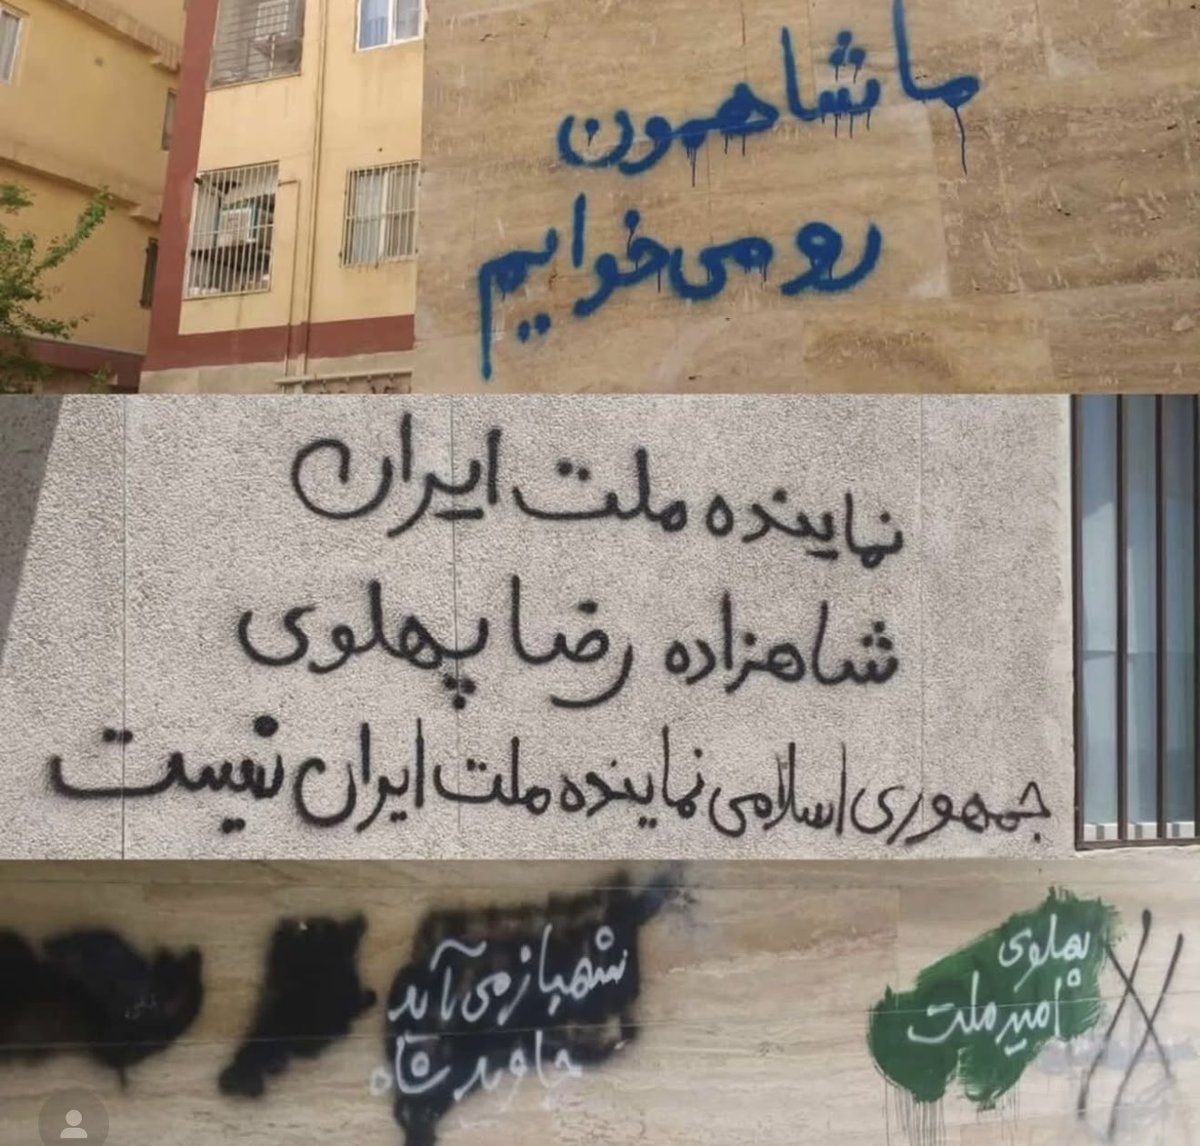 ما شاهمون
رو می خوایم
نماینده ملت ایران
شاهزاده رضا پهلوی
جمهوری اسلامی نماینده ملت ایران نیست
شهباز می آید
جاوید شاه
پهلوی
امید ملت